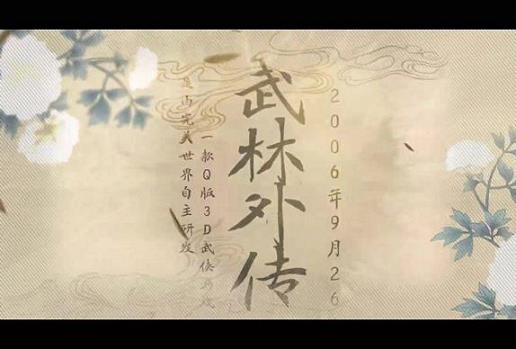 2006年9月26
武林外传
一款Q版3D武侠
是由完美世界自主研发